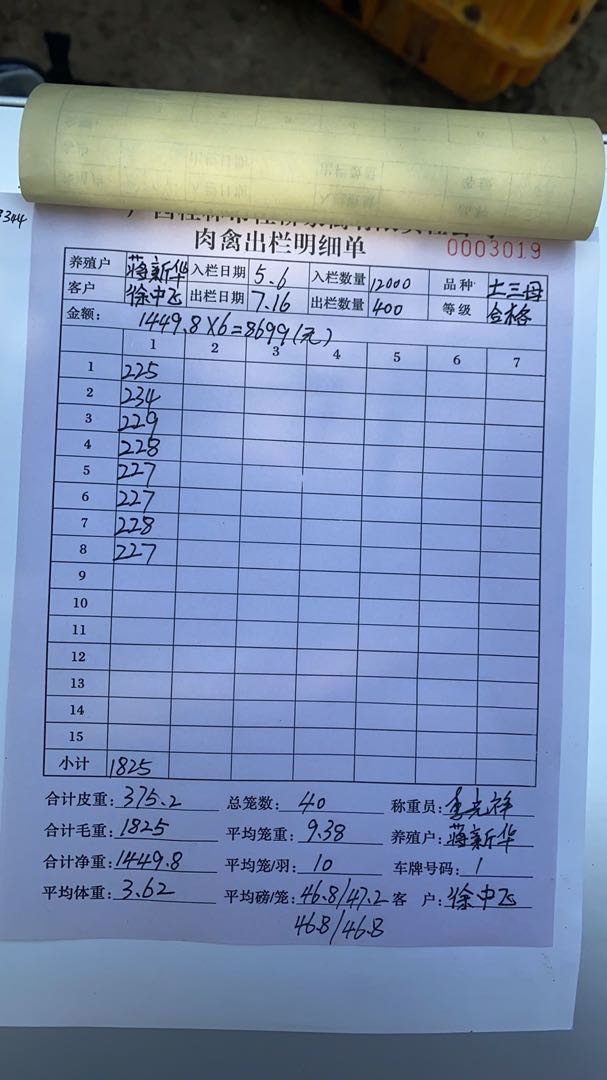 3344
肉禽出栏明细单 0003019
养殖户 蒋新华 入栏日期 5.6 入栏数量 12000 品种 土三母
客户 徐中飞 出栏日期 7.16 出栏数量 400 等级 合格
金额: 1449.8X6=8699(元)
1 2 3 4 5 6 7
1 225
2 234
3 229
4 228
5 227
6 227
7 228
8 227
9
10
11
12
13
14
15
小计 1825
合计皮重: 375.2 总笼数: 40 称重员:
合计毛重: 1825 平均笼重: 9.38 养殖户: 蒋新华
合计净重: 1449.8 平均笼/羽: 10 车牌号码: 1
平均体重: 3.62 平均磅/笼: 46.8/47.2 客 户: 徐中飞
46.8/46.8